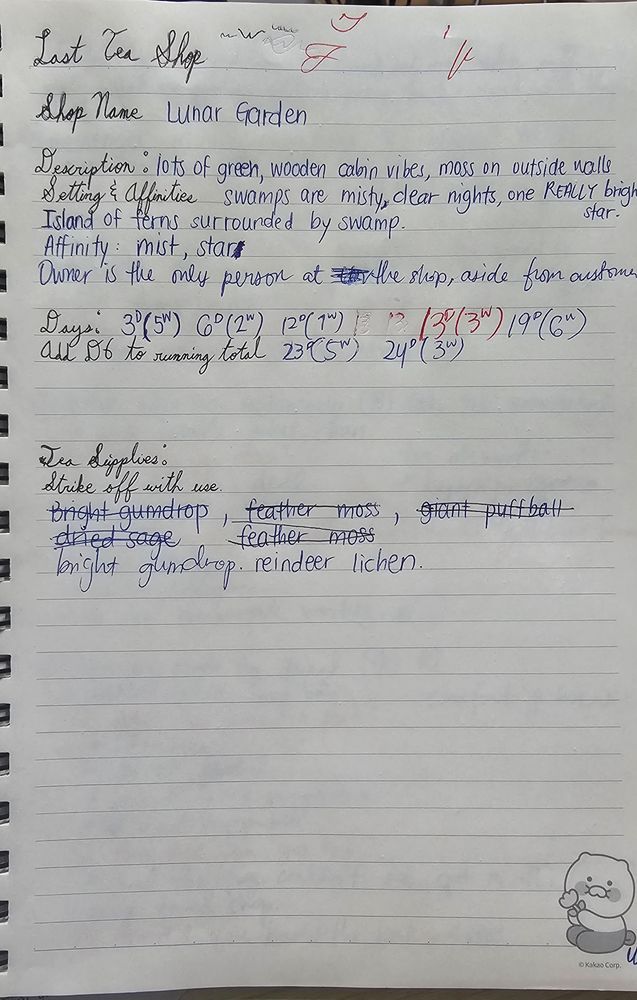 Last Tea Shop
Shop Name Lunar Garden
Description: lots of green, wooden cabin vibes, moss on outside walls
Setting & Affinities swamps are misty, clear nights, one REALLY brigh
star.
Island of ferns surrounded by swamp.
Affinity: mist, star
Owner is the only person at the shop, aside from custome
Days: 3ᴰ(5ᵂ) 6ᴰ(2ᵂ) 12ᴰ(1ᵂ) 13ᴰ(3ᵂ) 19ᴰ(6ᵂ)
Add D6 to running total 23ᴰ(5ᵂ) 24ᴰ(3ᵂ)
Tea Supplies:
Strike off with use.
Bright gumdrop, feather moss, giant puffball
dried sage feather moss
bright gumdrop. reindeer lichen.
© Kakao Corp.